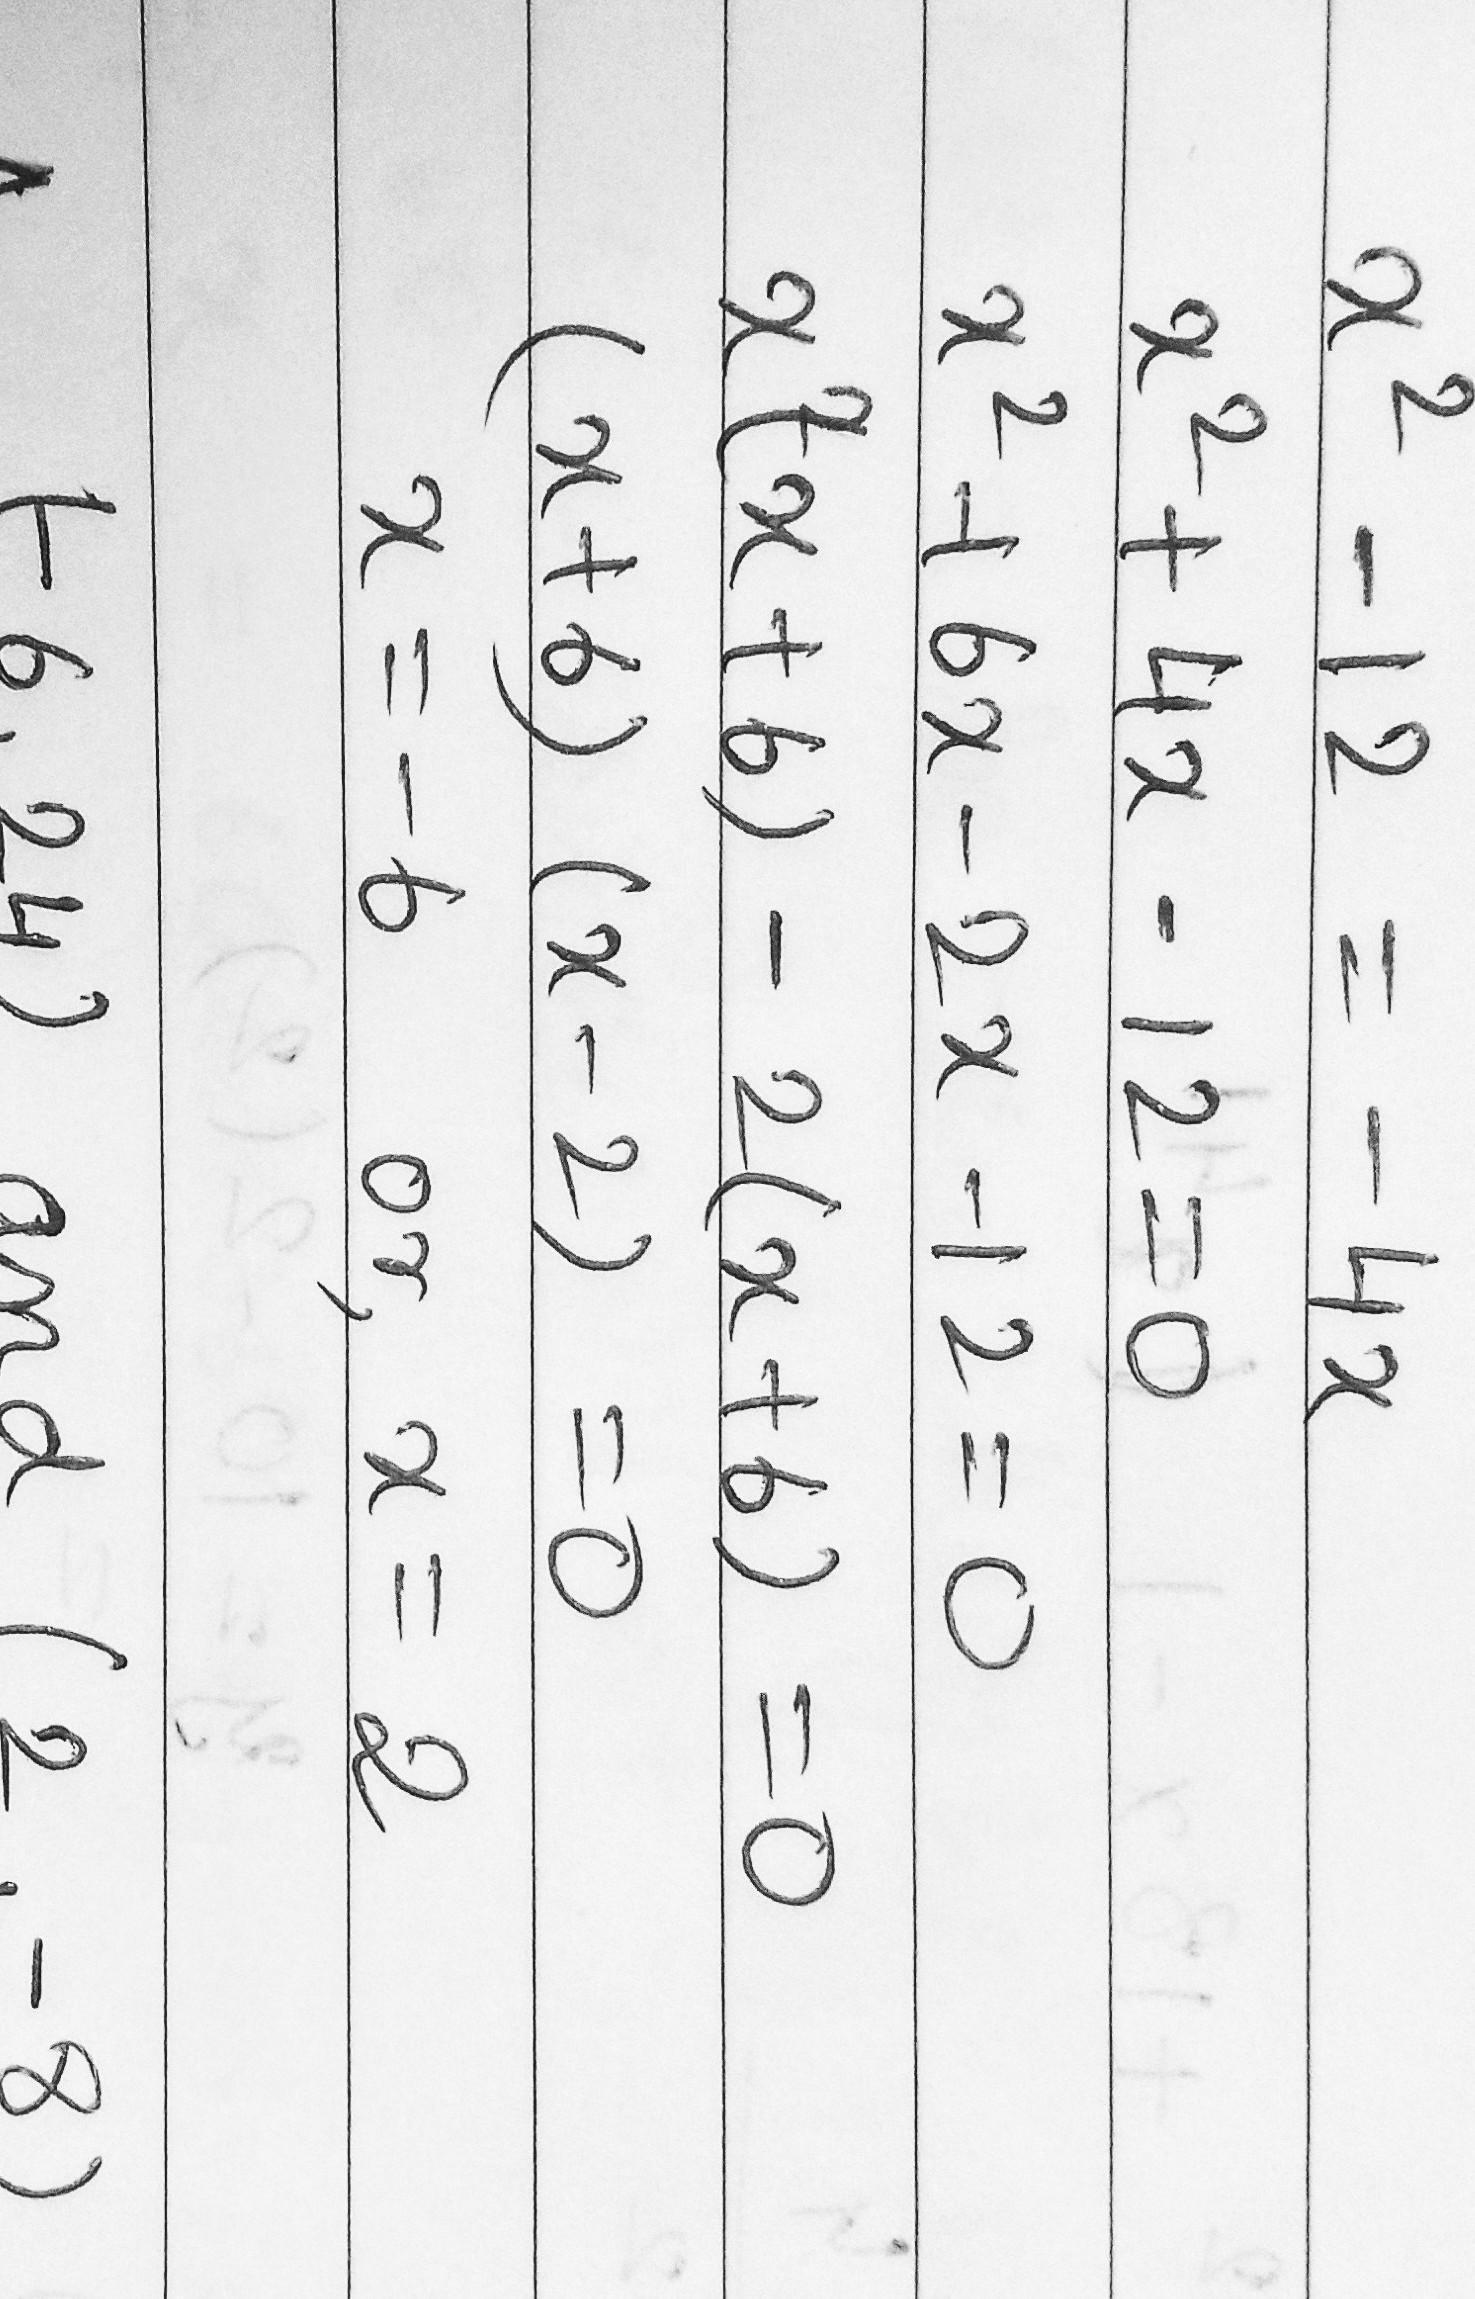 x² - 12 = - 4x
x² + 4x - 12 = 0
x² + 6x - 2x - 12 = 0
x(x + 6) - 2(x + 6) = 0
(x + 6) (x - 2) = 0
x = - 6 or, x = 2
(-6, 24) and (2, -8)